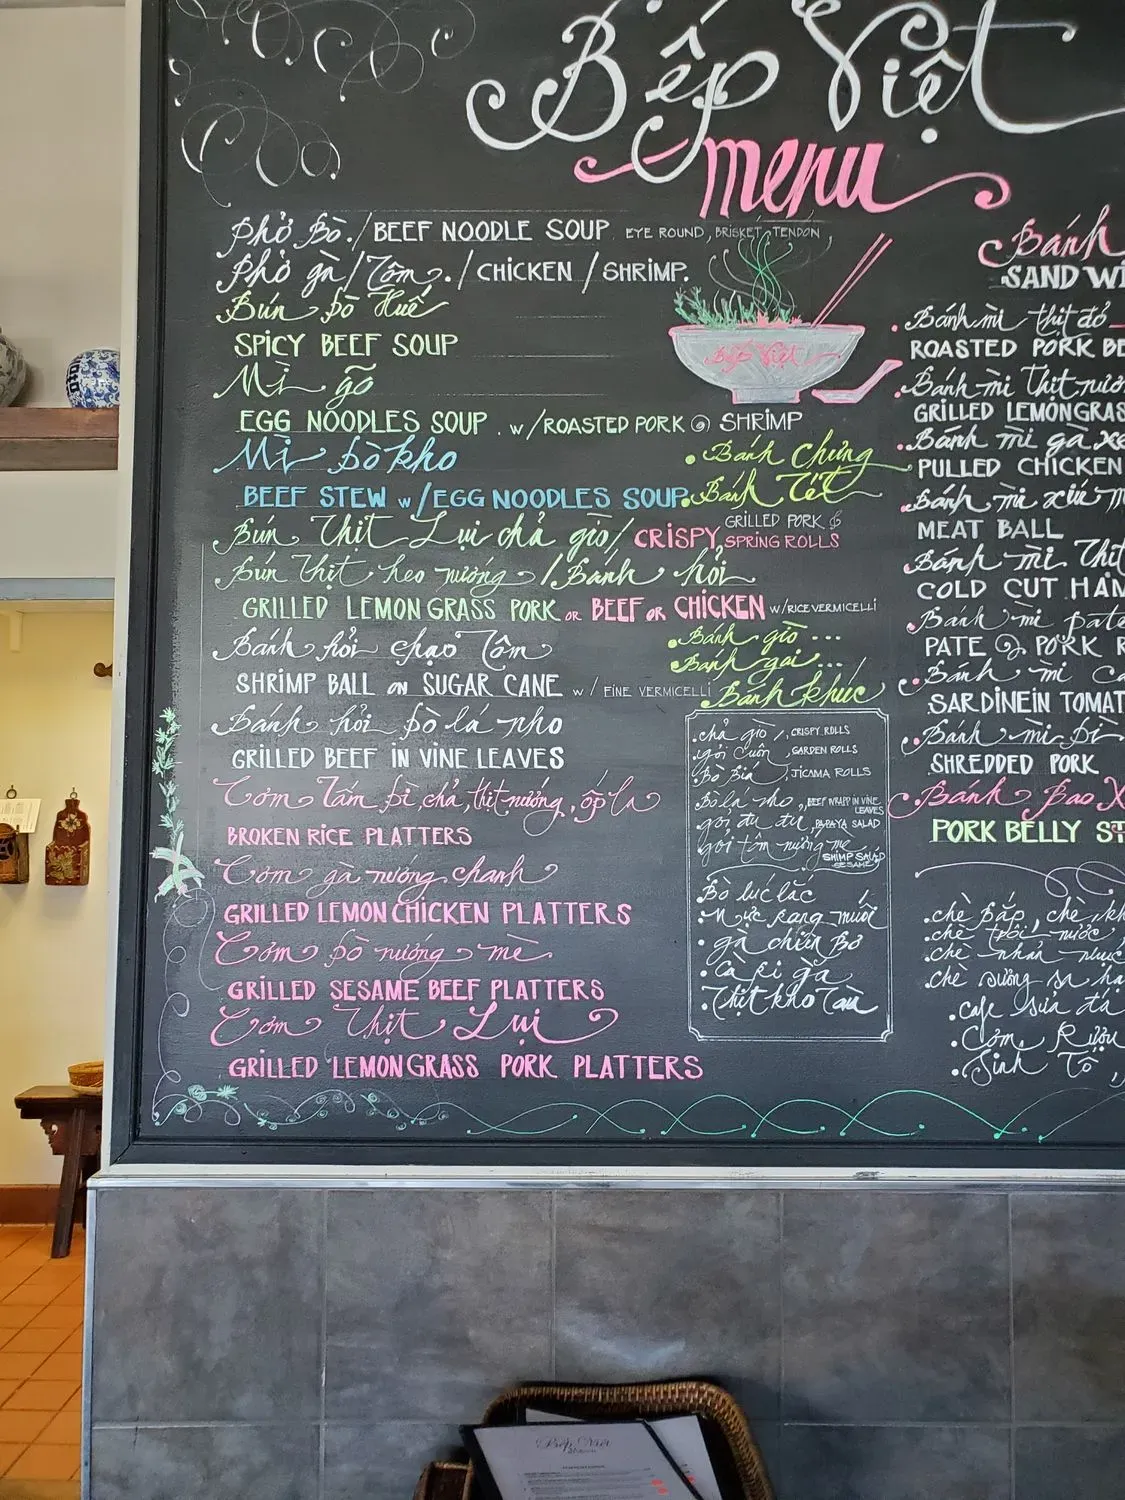 Bếp Việt
menu
Phở Bò. / BEEF NOODLE SOUP EYE ROUND, BRISKET, TENDON,
Phở gà / Tôm. / CHICKEN / SHRIMP.
Bún bò Huế
SPICY BEEF SOUP
Bếp Việt
Mì
EGG NOODLES SOUP. w/ROASTED PORK @ SHRIMP
Mì bò kho
BEEF STEW w/EGG NOODLES SOUP.
• Bánh chưng
• Bánh Tét
Bún Thịt Lụi chả giò / CRISPY GRILLED PORK & SPRING ROLLS
Bún Thịt heo nướng / Bánh hỏi
GRILLED LEMON GRASS PORK OR BEEF OR CHICKEN w/RICE VERMICELLI
Bánh hỏi chạo Tôm
SHRIMP BALL ON SUGAR CANE w/ FINE VERMICELLI
• Bánh giò ...
• Bánh gai ...
Bánh khúc
Bánh hỏi bò lá nho
GRILLED BEEF IN VINE LEAVES
Cơm Tấm bì, chả, thịt nướng, ốp la
BROKEN RICE PLATTERS
Cơm gà nướng chanh
GRILLED LEMON CHICKEN PLATTERS
Cơm bò nướng mè
GRILLED SESAME BEEF PLATTERS
Cơm Thịt Lụi
GRILLED LEMON GRASS PORK PLATTERS
• chả giò, CRISPY ROLLS
gỏi cuốn, GARDEN ROLLS
Bò Bía, JICAMA ROLLS
Bò lá nho, BEEF WRAPP IN VINE LEAVES
gỏi đu đủ, PAPAYA SALAD
gỏi tôm nướng mè
SHIMP SALAD SESAME
Bò lúc lắc
• Mực rang muối
• gà chiên Bơ
• Cà Ri gà
• Thịt kho Tàu
Bánh
SAND WI
• Bánh mì thịt đỏ
ROASTED PORK BE
• Bánh mì Thịt nướ
GRILLED LEMONGRAS
• Bánh mì gà xé
PULLED CHICKEN
• Bánh mì xíu m
MEAT BALL
Bánh mì Thịt
COLD CUT HAM
• Bánh mì pate
PATE @ PORK R
• Bánh mì c
SARDINE IN TOMAT
• Bánh mì Bì
SHREDDED PORK
• Bánh Bao X
PORK BELLY ST
• chè bắp, chè kh
• chè trôi nước,
• chè nhãn nhục
• chè sương sa hạ
• cafe sữa đá
• Cơm Rượu
• Sinh Tố,
Bếp Việt